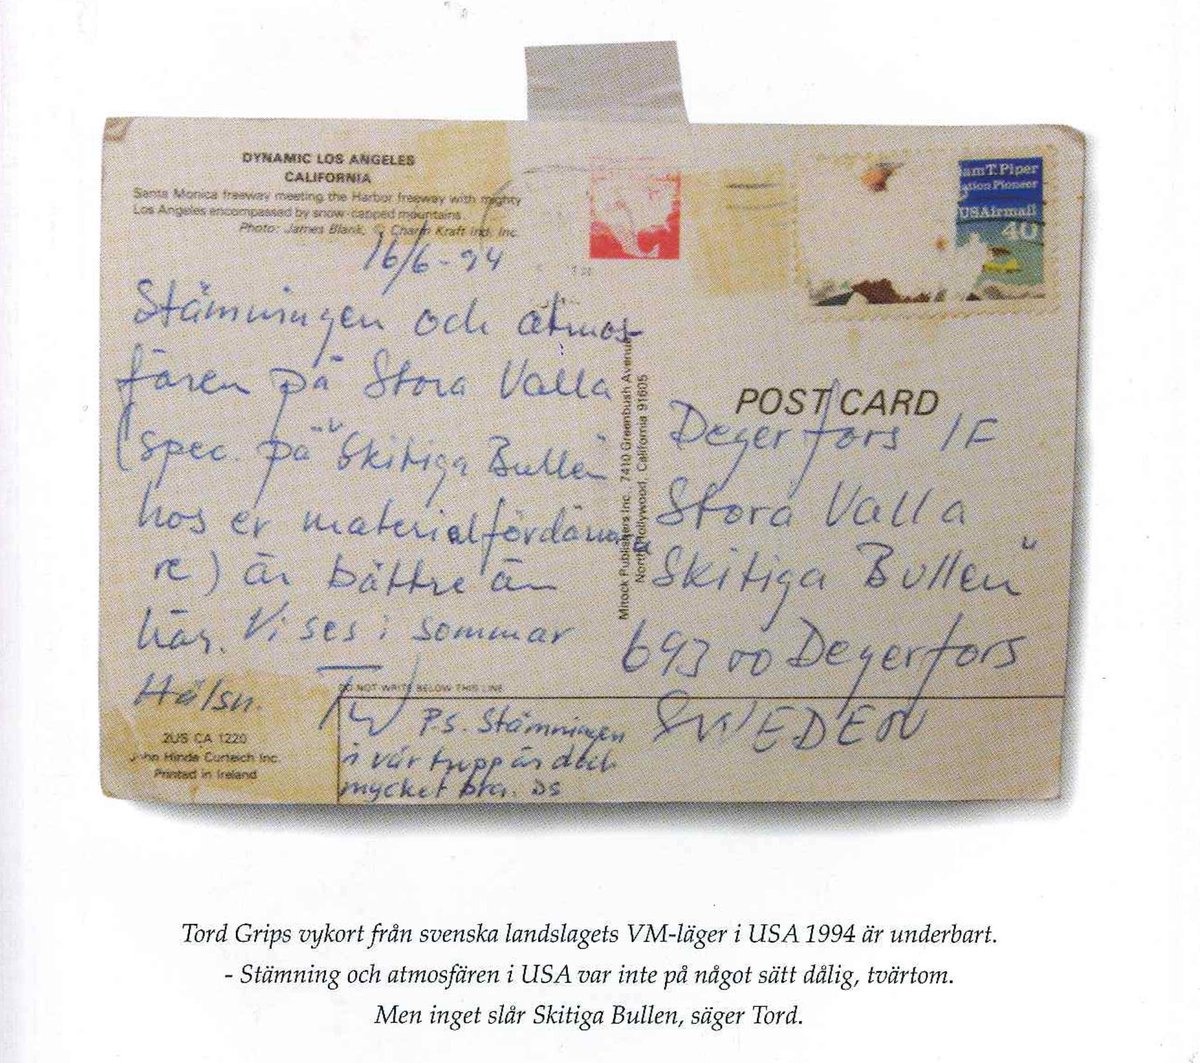 DYNAMIC LOS ANGELES
CALIFORNIA
Santa Monica freeway meeting the Harbor freeway with mighty
Los Angeles encompassed by snow-capped mountains.
Photo: James Blank, © Charm Kraft Ind. Inc.
16/6-94
Stämningen och atmos-
fären på Stora Valla
(spec. på "Skitiga Bullen"
hos er materialfördärva
re) är bättre än
här. Vi ses i sommar
Hälsn.
DO NOT WRITE BELOW THIS LINE
P.S. Stämningen
i vår trupp är dock
mycket bra. DS
2US CA 1220
John Hinde Curteich Inc.
Printed in Ireland
Mitock Publishers Inc. 7410 Greenbush Avenue
North Hollywood, California 91605
am T. Piper
ation Pioneer
USAirmail
40
POST CARD
Degerfors IF
Stora Valla
"Skitiga Bullen"
693 00 Degerfors
SWEDEN
Tord Grips vykort från svenska landslagets VM-läger i USA 1994 är underbart.
- Stämning och atmosfären i USA var inte på något sätt dålig, tvärtom.
Men inget slår Skitiga Bullen, säger Tord.